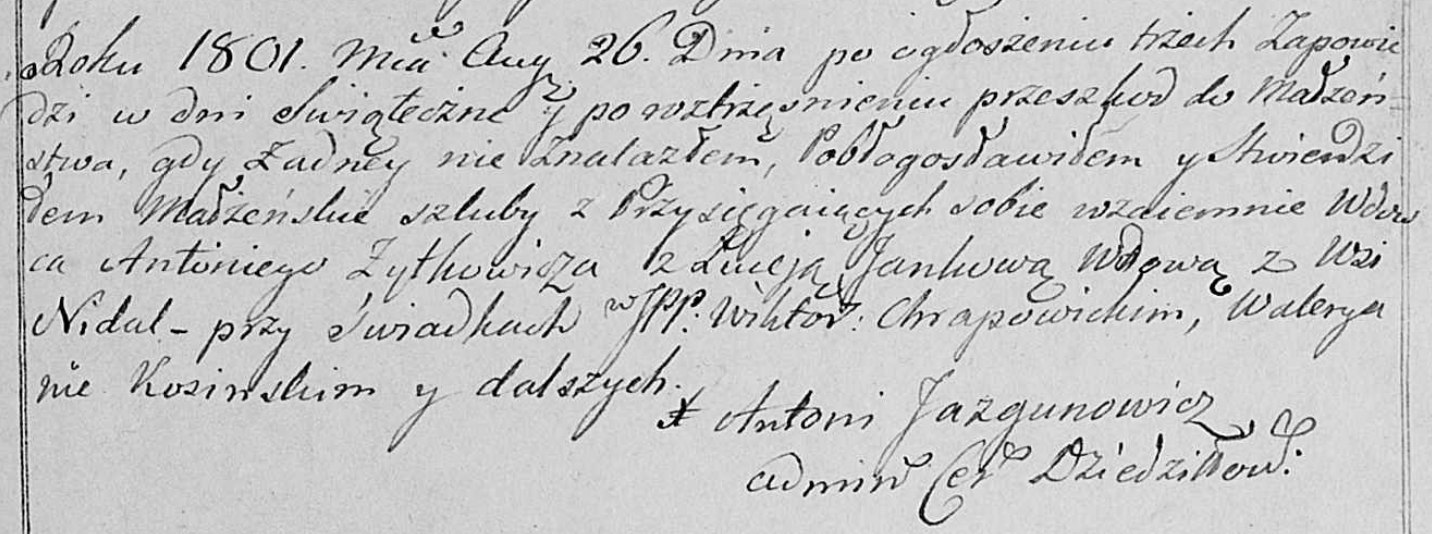 Roku 1801. Mca Aug 26. Dnia po ogłoszeniu trzech Zapowie
dzi w dni Swiąteczne y po roztrząsnieniu przeszkod do Małżeń=
stwa, gdy Żadney nie Znalazłem, Pobłogosławiłem y Stwierdzi
łem Małżeńskie szluby z Przysięgaiących sobie wzaiemnie Wdow
ca Antoniego Żytkowicza z Łucją Jankową Wdową z Wsi
Nidal - przy Świadkach WJPP. Wiktor: Chrapowickim, Walerya
nie Kosinskim y dalszych.
X Antoni Jazgunowicz
Admin Cer Dziedziłow: